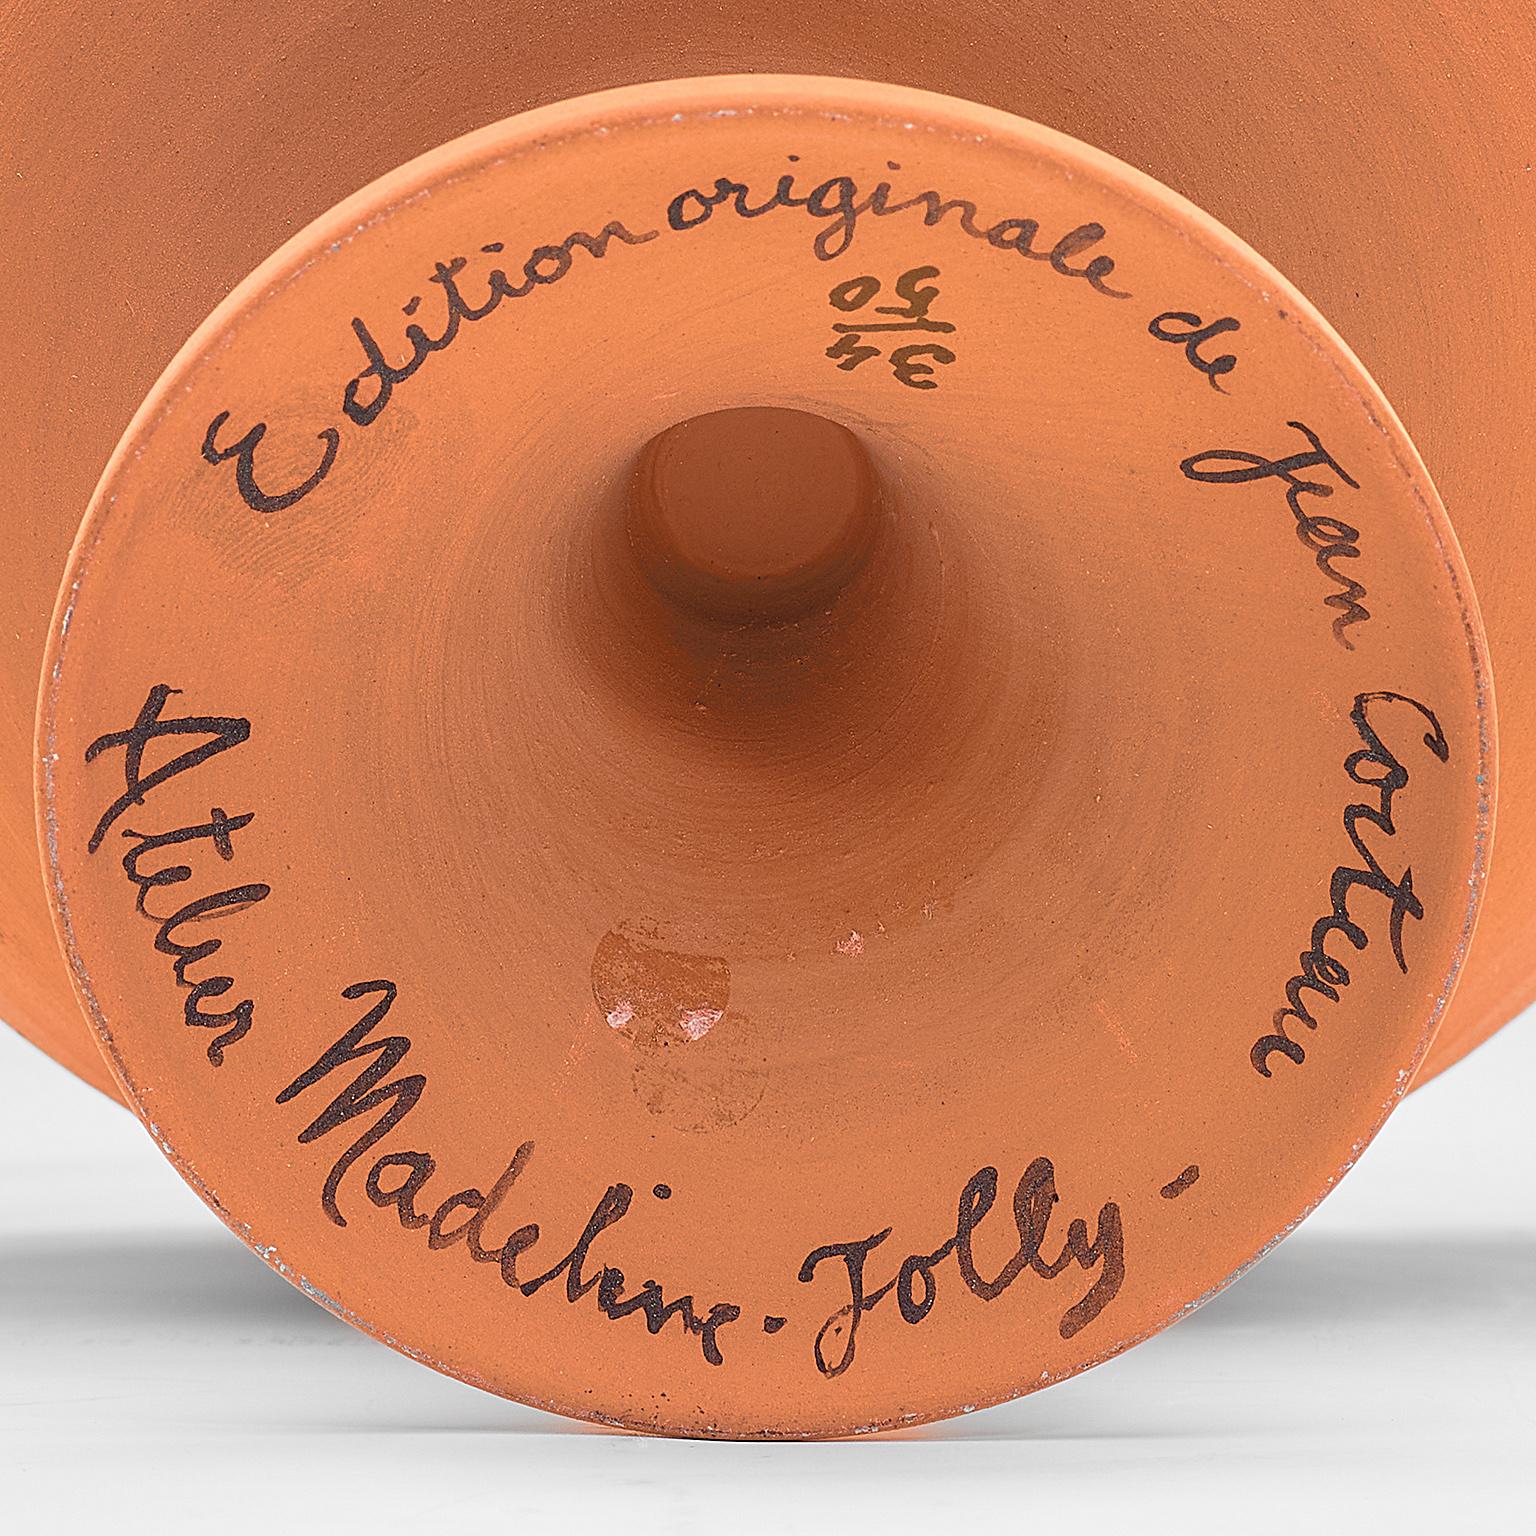 Edition originale de Jean Corteau
34/50
Atelier Madeline-Jolly-